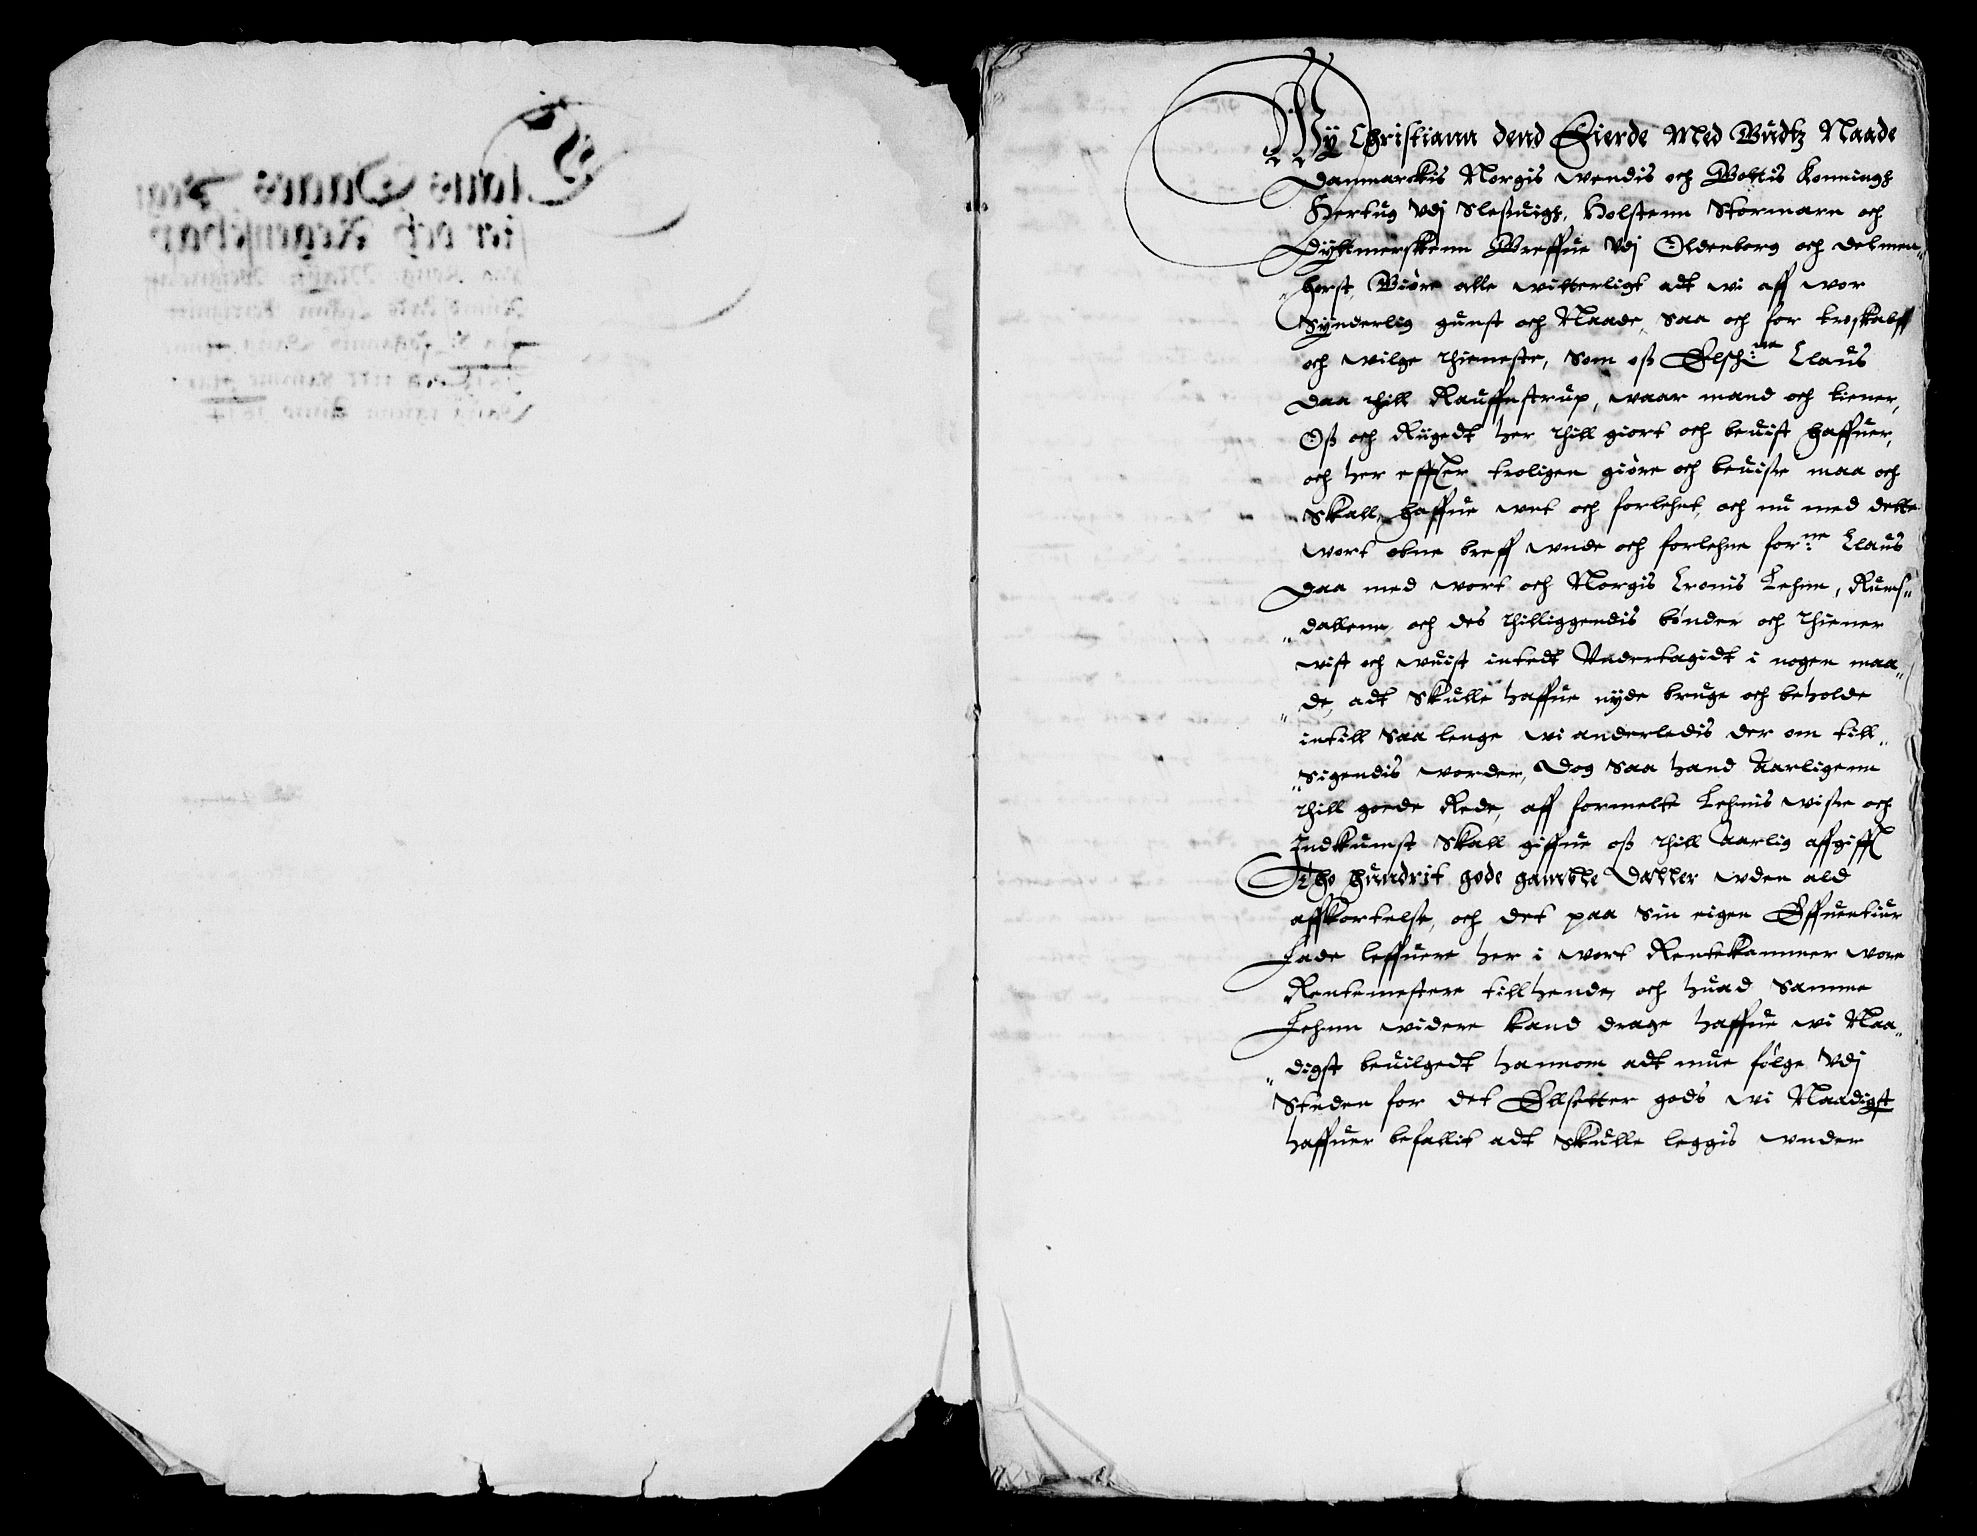 Wy Christiann dend Fierde Med Gudtz Naade
Danmarckis Norgis Wendis och Gottis Konningh
Hertug vdj Sleßuigh, Holstenn Stormarn och
Dyttmerskenn Greffue vdj Oldenborg och Delmen„
„horst, Giøre alle witterligt adt wi aff wor
Synderlig gunst och Naade, saa och for troskabff
och willge thieneste, som oß Elsch:ne Claus
Daa thill Rauffnstrup, waar mand och tiener,
Oß och Rigedt her thill giort och beuist haffuer,
och her effter troligen giøre och beuise maa och
Skall, haffue wnt och forlehnt, och nu med dette
wort obne breff wnde och forlehne for:ne Claus
Daa med wort och Norgis Cronis Lehnn, Rums„
„dallenn, och des thilliggendis bønder och thiener
wist och wuist intedt Vndertagidt i nogen maa„
„de, adt Skulle haffue nyde bruge och beholde
intill saa lenge wi anderledis der om till„
„sigendis worder, Dog saa hand Aarligenn
thill goede Rede, aff formelte Lehnis wisse och
Indkumst Skall giffue oß thill Aarlig affgifft
Tho hundrit gode gamble Daller uden ald
affkortelse, och det paa sin eigen Effuentiur
Lade leffuere her i wort Rentekammer wore
Rentemestere till hende, och huad samme
Lehnn widere kand drage haffue wi Naa„
„digst beuilgedt hannom adt mue følge vdj
Steden for det Ellsetter gods wi Naadigst
haffuer befallit adt Skulle leggis wnder